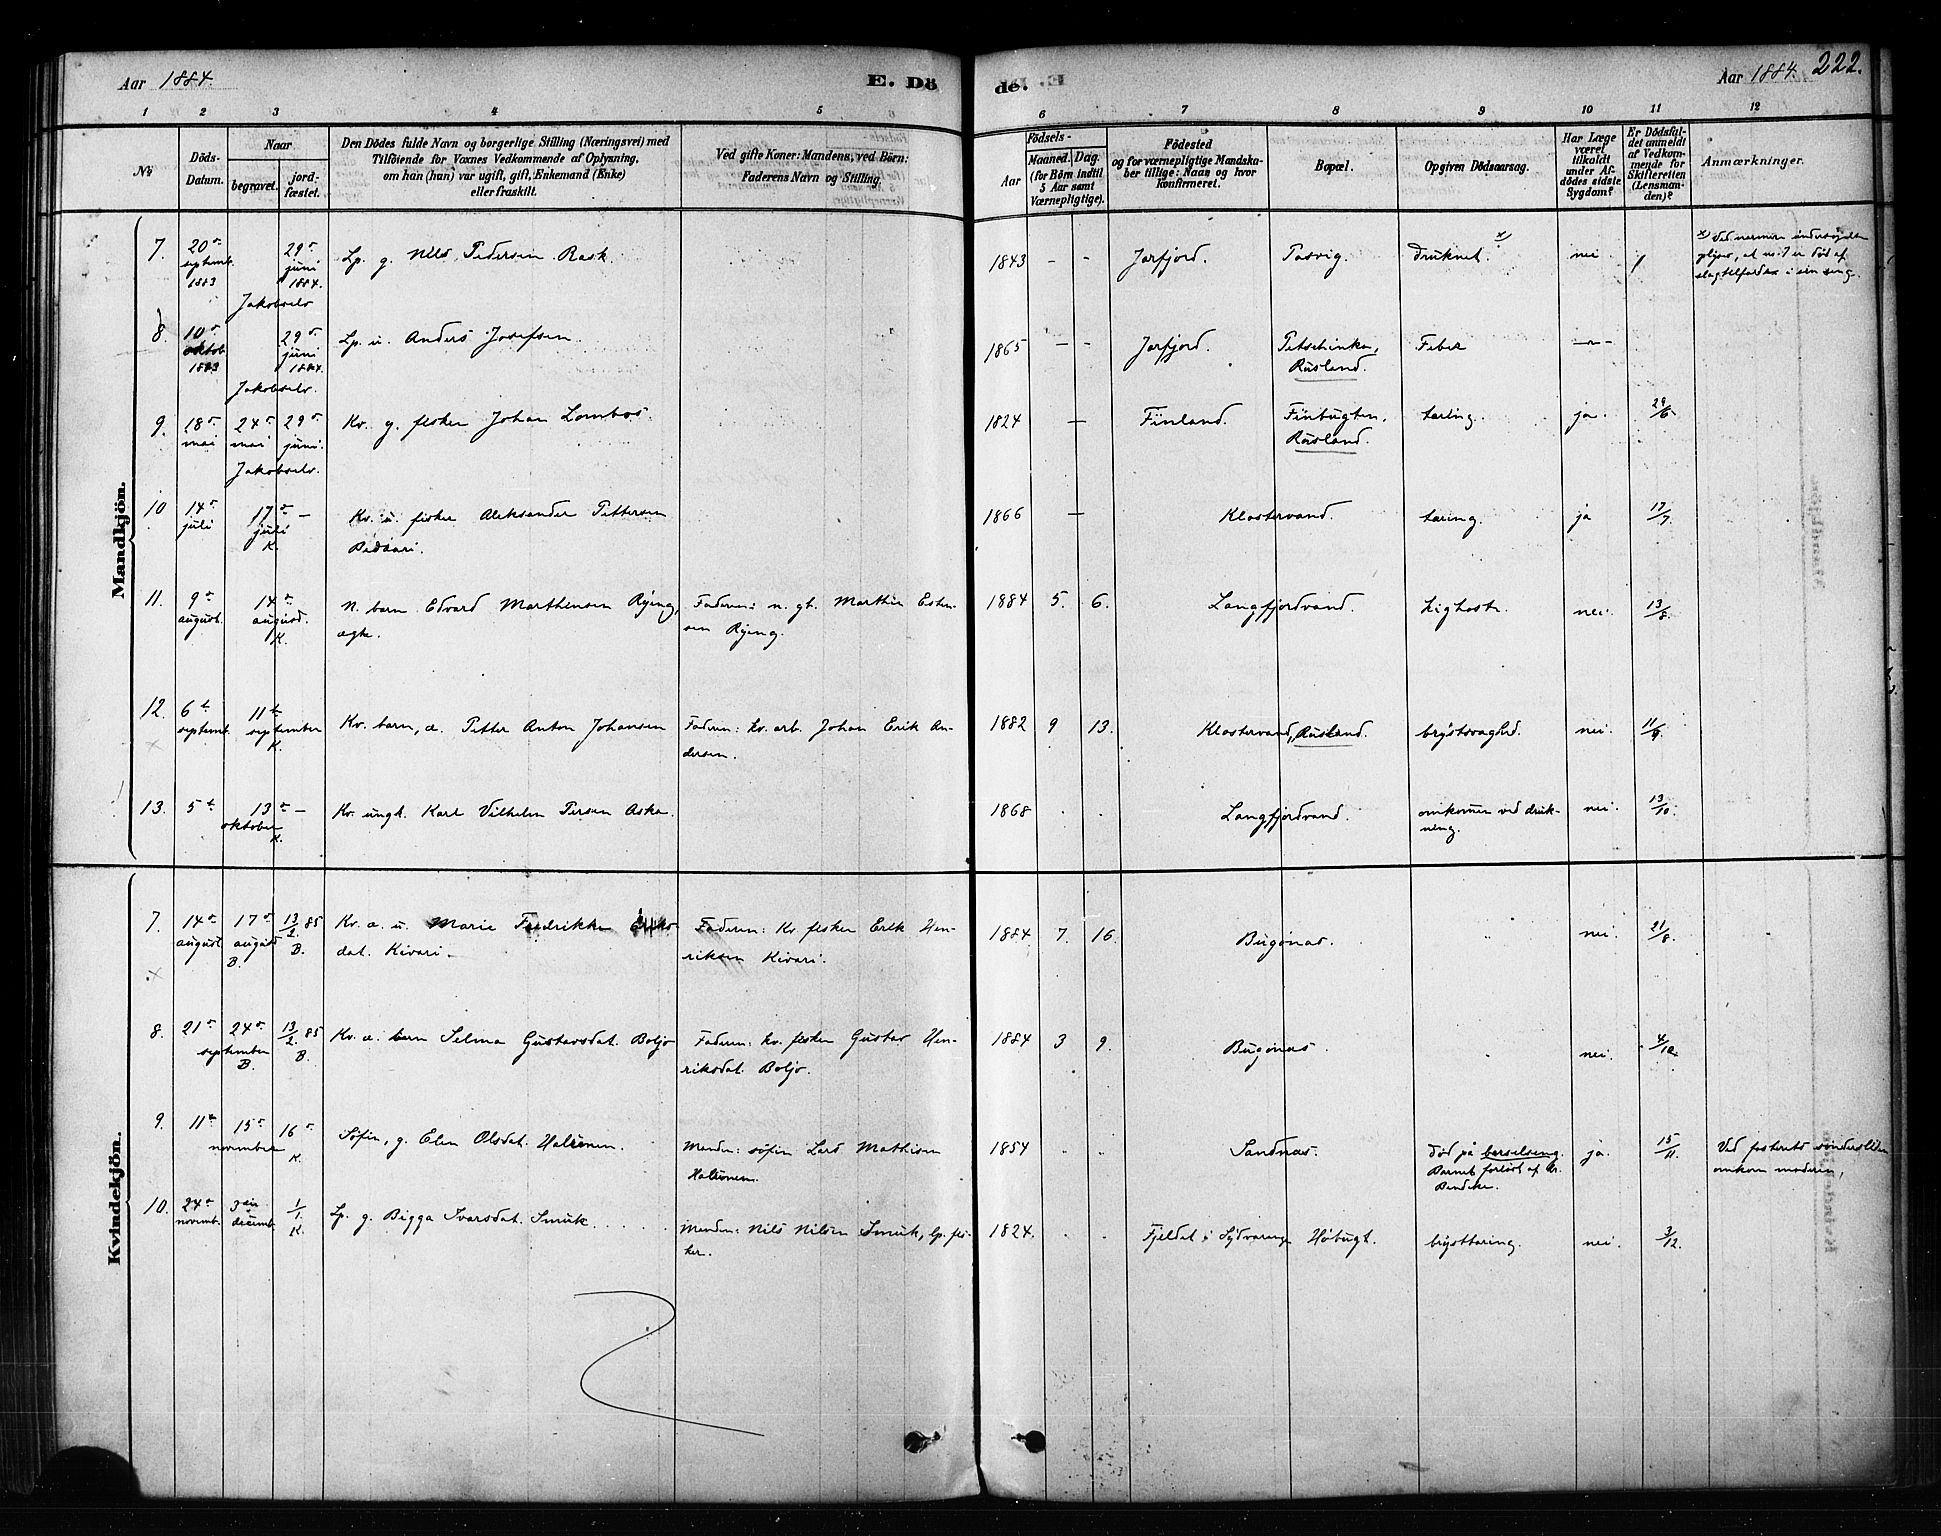 Aar 1884.
E. Dö
de.
Aar 1884.
222.
1 2 3 4 5 6 7 8 9 10 11 12
No
Döds-
Datum.
Naar
begravet.
jord-
fæstet.
Den Dödes fulde Navn og borgerlige Stilling (Næringsvei) med
Tilföiende for Voxnes Vedkommende af Oplysning,
om han (hun) var ugift, gift, Enkemand (Enke)
eller fraskilt.
Ved gifte Koner: Mandens, ved Börn:
Faderens Navn og Stilling.
Födsels-
Aar
Maaned. Dag.
(for Börn indtil
5 Aar samt
Værnepligtige).
Födested
og for værnepligtige Mandska-
ber tillige: Naar og hvor
konfirmeret.
Bopæl.
Opgiven Dödsaarsag.
Har Læge
været
tilkaldt
under Af-
dödes sidste
Sygdom?
Er Dödsfal-
det anmeldt
af Vedkom-
mende for
Skifteretten
(Lensman-
den)?
Anmærkninger.
Mandkjön.
7. 20de septemb. 1883 29de juni 1884. Jakobselv
Lp. g. Nils Pedersen Rask.
1843 - - Jarfjord. Pasvig. druknet. x) nei
x) Ved nærmere undersøgelse
at no. 7 er død af
slagtilfælde i sin seng.
8. 10de oktob. 1883 29de juni 1884. Jakobselv.
Lp. u. Anders Josefsen.
1865 - - Jarfjord. Petschenka, Rusland. Feber -"-
9. 18de mai 24de mai 29de juni. Jakobselv.
Kv. g. fisker Johan Lombos.
1824 — Finland. Finbugten, Rusland. tæring. ja. 29/6.
10 14de juli 17de juli K. —
Kv. u. fisker Aleksander Pettersen
1866 — Klostervand. tæring. ja 17/7.
11. 9de august. 14de august. K.
N. barn Edvard Marthinsen Ryeng,
ægte.
Faderen: n. gb. Marthin Esten-
sen Ryeng.
1884 5. 6. Langfjordvand. kighoste. nei. 13/8.
12. 6te septemb. 11te september K.
Kv. barn, æ. Petter Anton Johansen
Faderen: kv. arb. Johan Erik An-
dersen.
1882 9 13. Klostervand, Rusland. brystsvaghed. nei. 11/9.
13. 5te 13de — oktober K.
Kv. ungk. Karl Vilhelm Persen Aska.
1868 Langfjordvand. omkommen ved druk-
ning. nei. 13/10.
Kvindekjön.
7. 14de august 17de august B. 13/2 85 B.
Kv. æ. u. Marie Fredrikke Eriks-
dat. Kivari.
Faderen: Kv. fisker Erik Hen-
riksen Kivari.
1884 7. 16. Bugønæs. " nei. 21/8.
8. 21de 24de september B. 13/2 85 B.
Kv. æ. barn Selma Gustavsdat. Boljo
Faderen: kv. fisker Gustav Hen-
riksdat. Boljo.
1884 3 9. Bugønæs. nei. 4/10.
9. 11te 15de november 16de K.
Søfin, g. Elen Olsdat. Halvonen.
Manden: søfin Lars Mathisen
Halvonen.
1854 Sandnæs. død på barselseng.
Barnet forløst af dr.
ja. 15/11. Ved fosterets sønderdelen
omkom moderen,
10. 24de novemb. 3die decemb. 1/1. K.
Lp. g. Bigga Ivarsdat. Smuk.
Manden: Nils Nilsen Smuk, lp. fis-
ker.
1824. Fjeldet i Sydvaranger Høbugt. brysttæring. nei. 3/12.